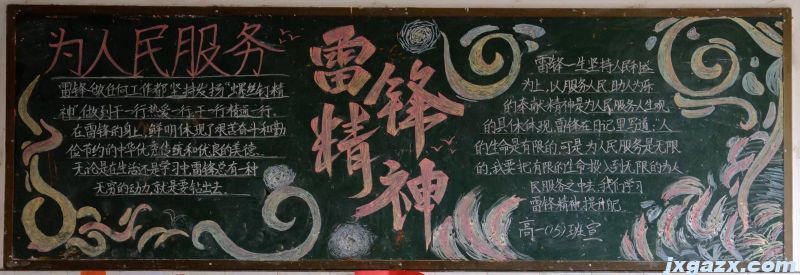 为人民服务
雷锋做任何工作都坚持发扬"螺丝钉精
神",做到干一行热爱一行,干一行精通一行。
在雷锋的身上,鲜明体现了艰苦奋斗和勤
俭节约的中华优秀传统和优良的美德。
无论是在生活还是学习中雷锋总有一种
无穷的动力,就是要钻出去。
雷锋
精神
雷锋一生坚持人民利益
为上,以服务人民助人为乐
的奉献精神是为人民服务人生观
的具体体现,雷锋在日记里写道:"人
的生命是有限的,可是为人民服务是无限
的,我要把有限的生命投入到无限的为人
民服务之中去,我们学习
雷锋精神
高一(15)班宣
jxgazx.com